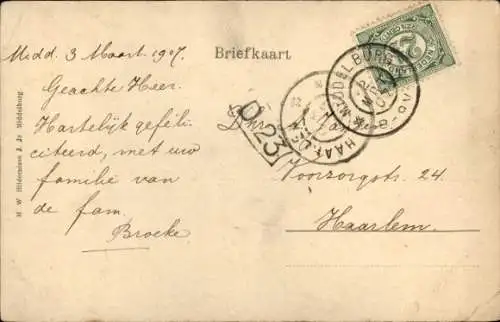 Briefkaart
Midd. 3 Maart 1907.
Geachte Heer.
Hartelijk gefeli-
citeerd, met uw
familie van
de fam.
Broeke
Voorzorgstr. 24
Haarlem.
D. 23
MIDDELBURG
HAARLEM
M. W. Hildernisse J. Jz. Middelburg